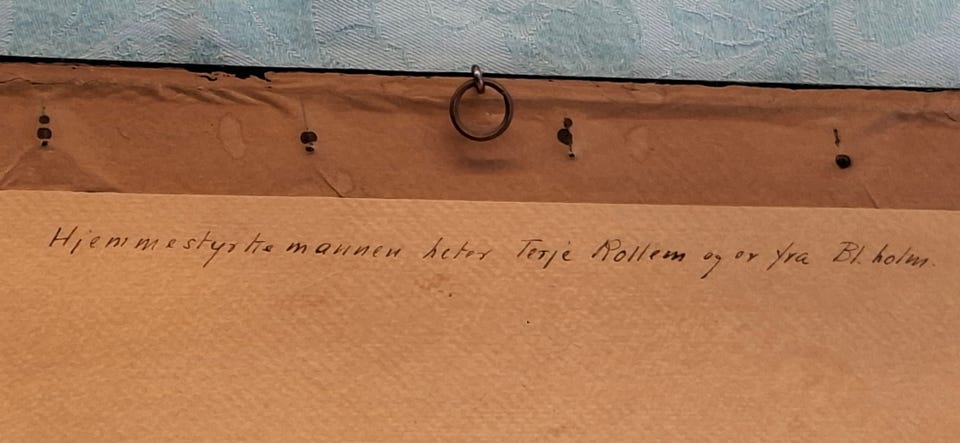 Hjemmestyrkemannen heter Terje Rollem og er fra Bl.holm.